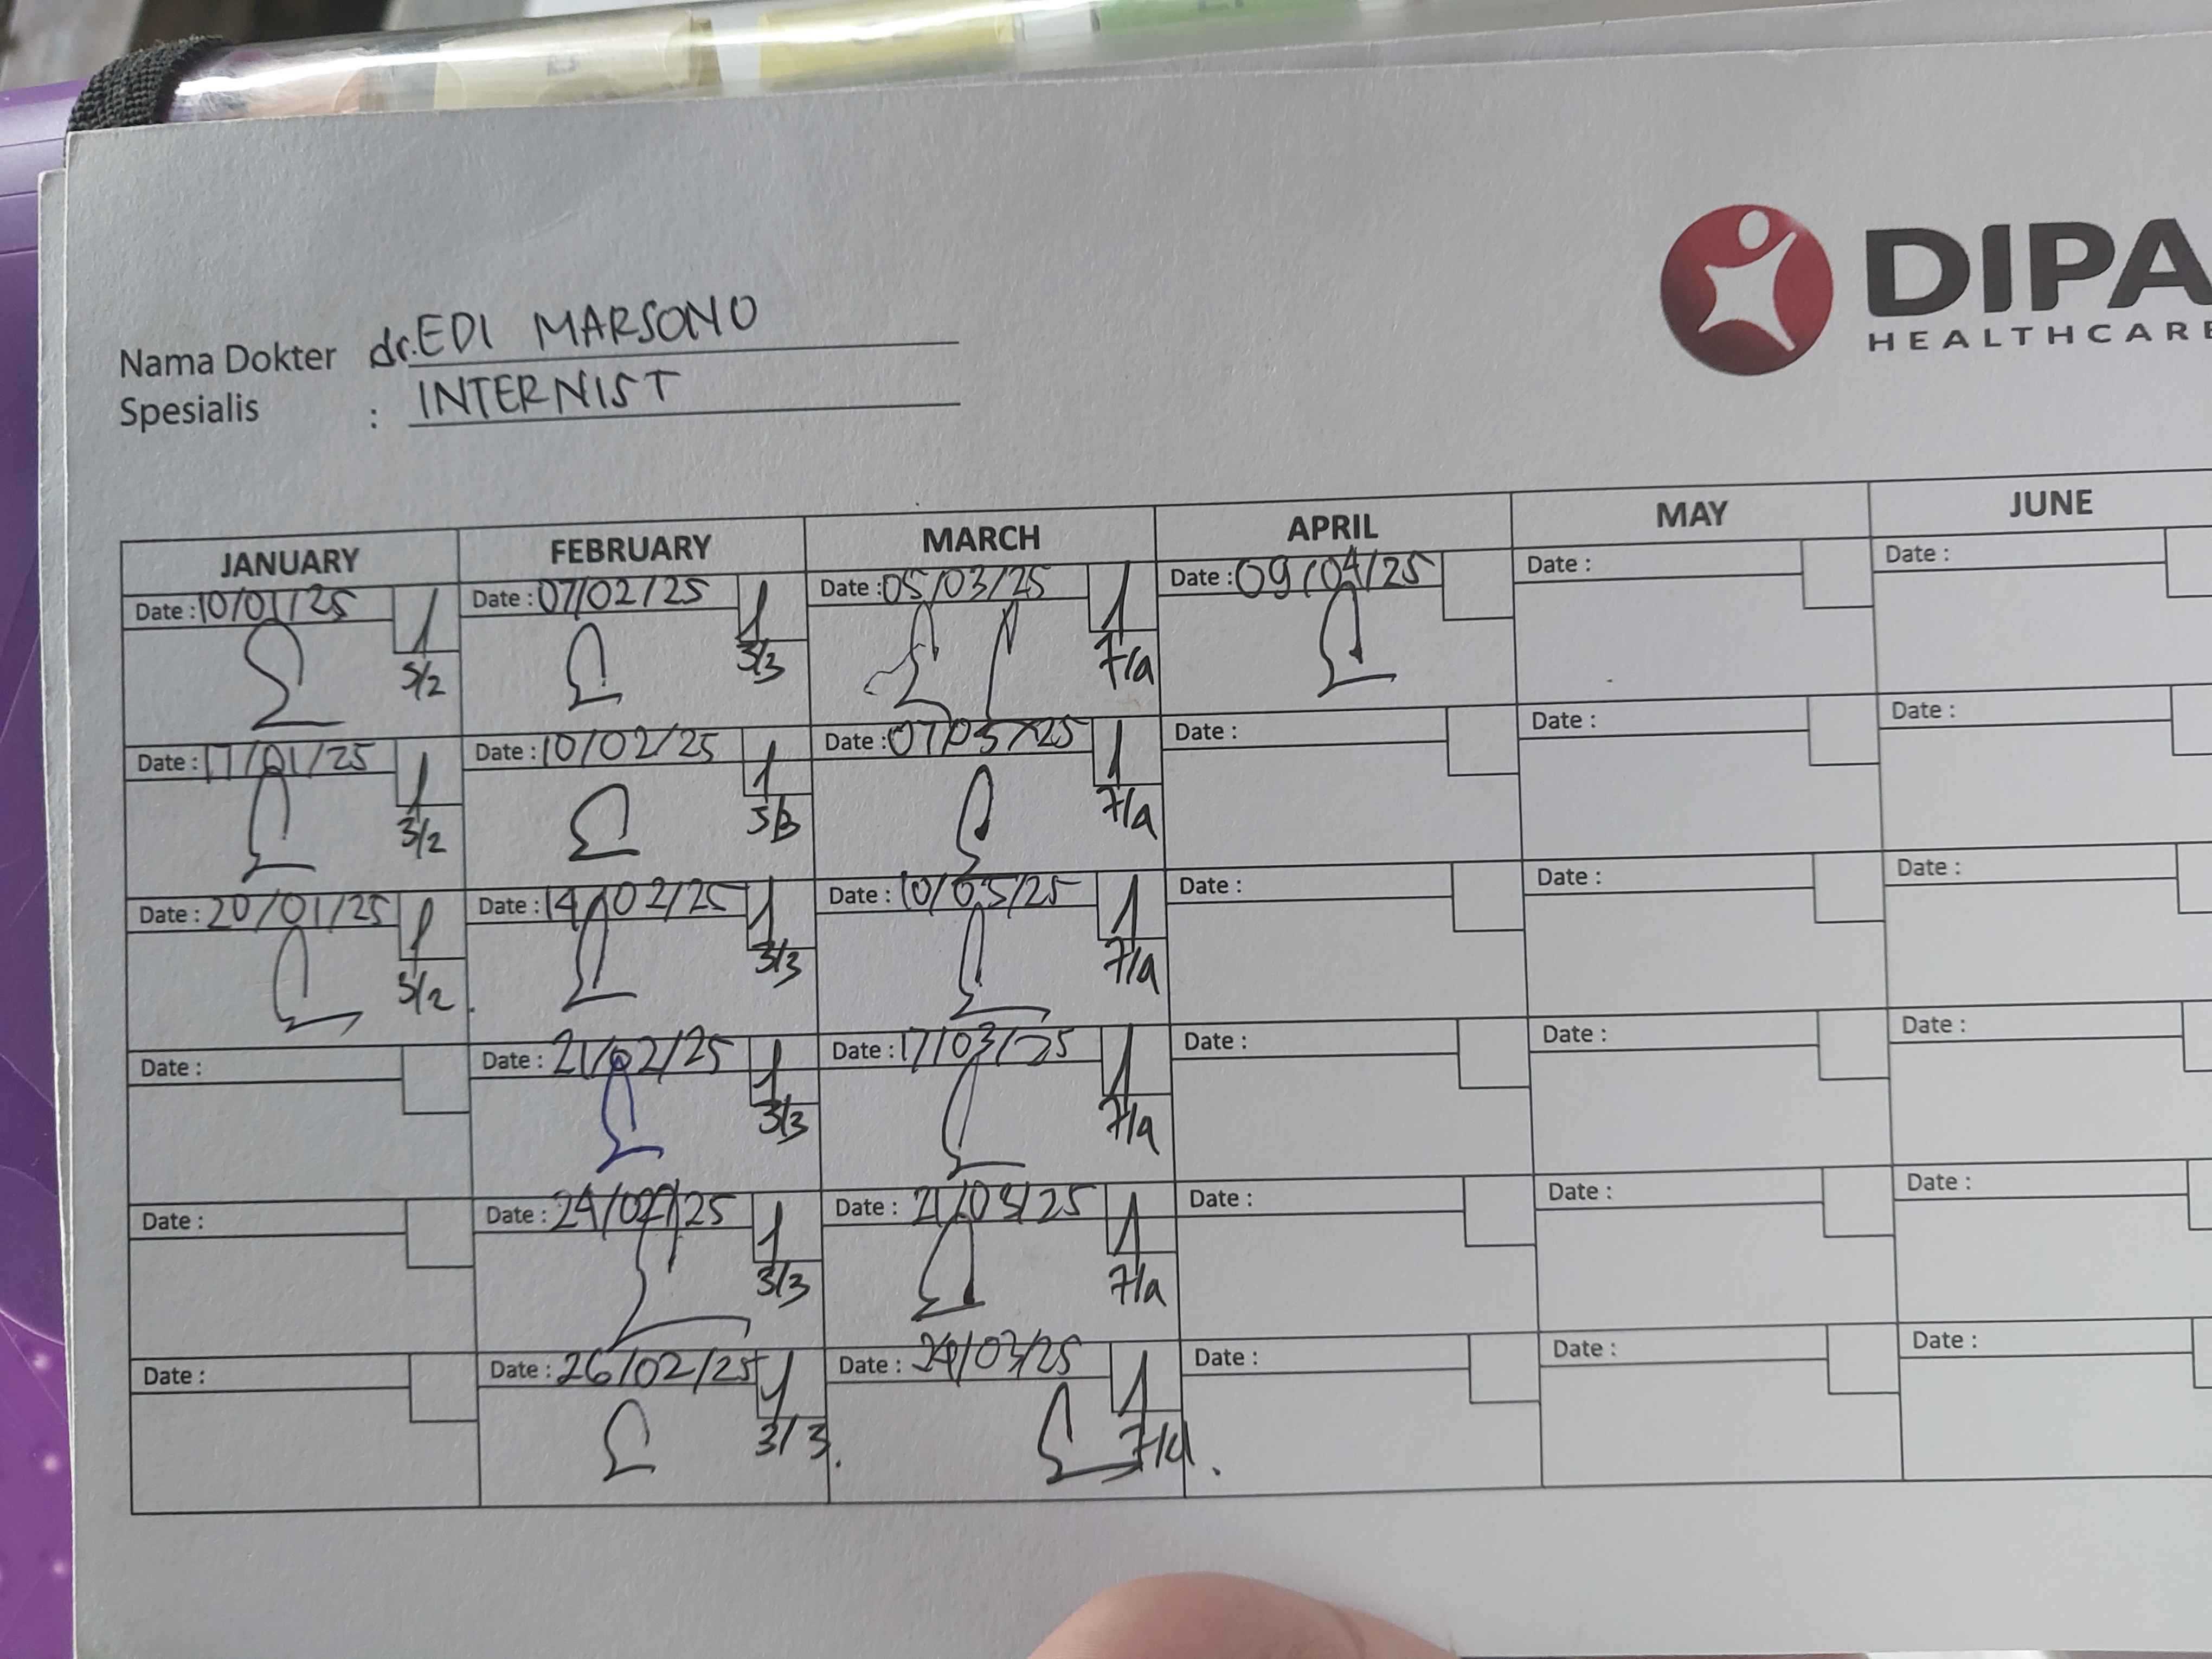 DIPA
HEALTHCARE
Nama Dokter dr. EDI MARSONO
Spesialis : INTERNIST
JANUARY FEBRUARY MARCH APRIL MAY JUNE
Date : 10/01/25 Date : 07/02/25 Date : 05/03/25 Date : 09/04/25 Date : Date :
3/2 3/3 7/4
Date : 17/01/25 Date : 10/02/25 Date : 07/03/25 Date : Date : Date :
3/2 3/3 7/4
Date : 20/01/25 Date : 14/02/25 Date : 10/03/25 Date : Date : Date :
3/2 3/3 7/4
Date : Date : 21/02/25 Date : 17/03/25 Date : Date : Date :
3/3 7/4
Date : Date : 24/02/25 Date : 21/03/25 Date : Date : Date :
3/3 7/4
Date : Date : 26/02/25 Date : 24/03/25 Date : Date : Date :
3/3 7/4